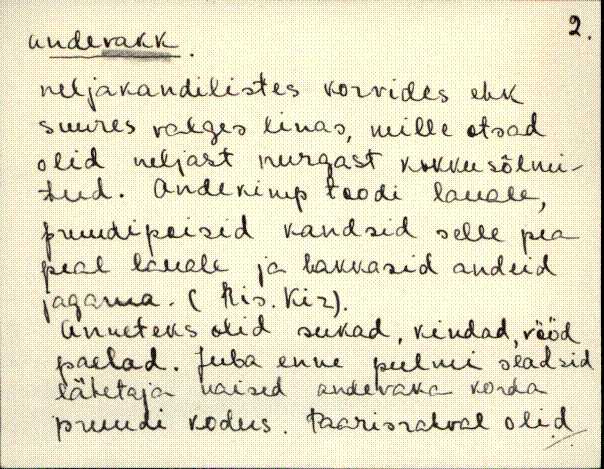 2.
andevakk.
neljakandilistes korvides ehk
suures valges linas, mille otsad
olid neljast nurgast kokku sõlmi-
tud. Andekimp toodi lauale,
pruudipoisid kandsid selle pea
peal lauale ja hakkasid andeid
jagama. ( Ris. Kir).
Anneteks olid sukad, kindad, vööd
paelad. Juba enne pulmi seadsid
lähetaja naised andevaka korda
pruudi kodus. Paarisrahval olid